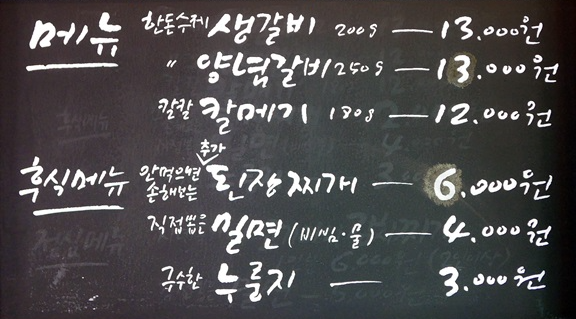 메뉴 한돈수제 생갈비 200g — 13.000원
〃 양념갈비 250g — 13.000원
칼칼 칼메기 180g — 12.000원
추가
후식메뉴 안먹으면 손해보는 된장찌개 — 6.000원
직접뽑은 밀면 (비빔·물) — 4.000원
구수한 누룽지 — 3.000원